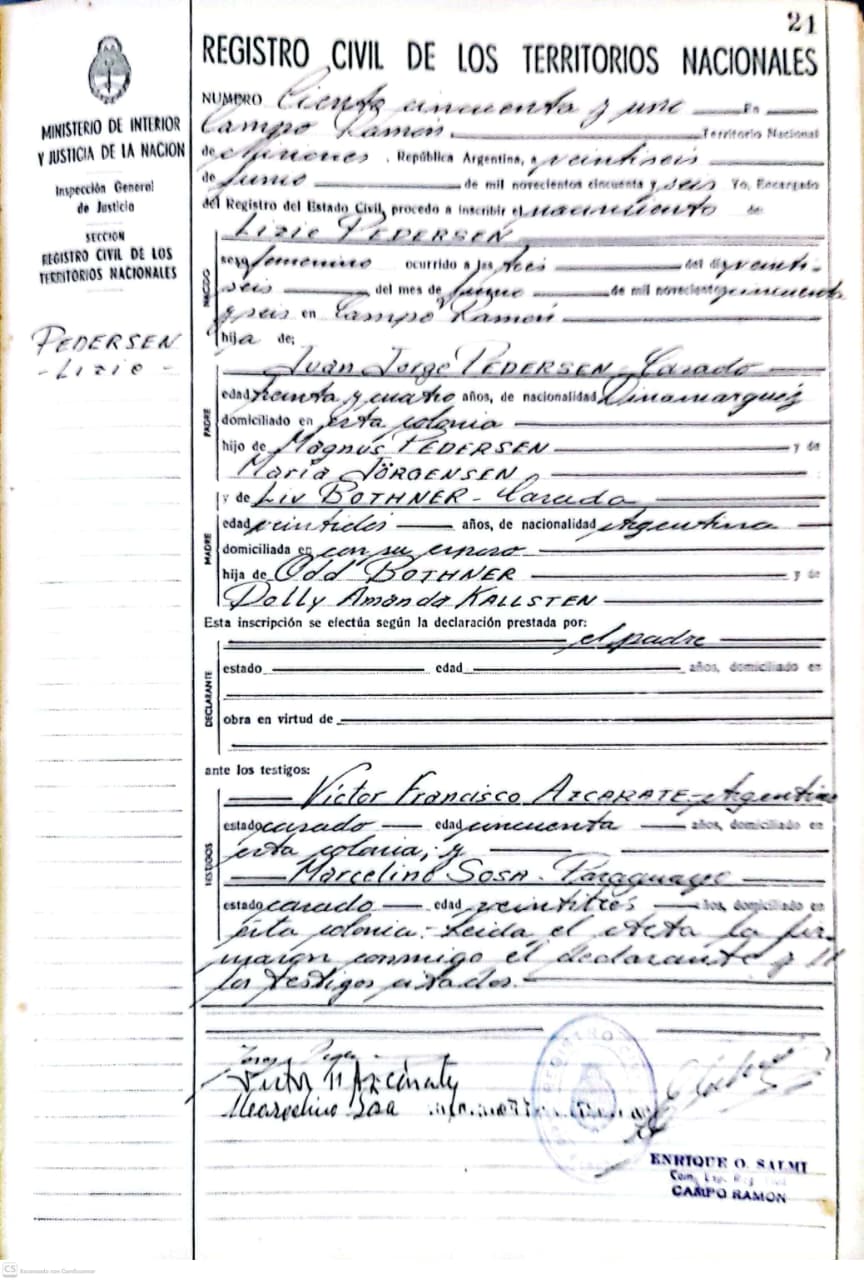 21
REGISTRO CIVIL DE LOS TERRITORIOS NACIONALES
MINISTERIO DE INTERIOR
Y JUSTICIA DE LA NACION
Inspección General
de Justicia
SECCION
REGISTRO CIVIL DE LOS
TERRITORIOS NACIONALES
PEDERSEN
- Lizie -
NUMERO Ciento cincuenta y uno En
Campo Ramón Territorio Nacional
de Misiones, República Argentina, a veintiseis
de Junio de mil novecientos cincuenta y seis Yo, Encargado
del Registro del Estado Civil, procedo a inscribir el nacimiento de
Lizie PEDERSEN
sexo femenino ocurrido a las tres del día veinti-
seis del mes de de mil novecientos cincuenta
y seis en Campo Ramón
hija de:
Juan Jorge PEDERSEN - Casado
PADRE
edad treinta y cuatro años, de nacionalidad Dinamarquéz
domiciliado en esta colonia
hijo de Magnus PEDERSEN y de
María JÖRGENSEN
y de Liv BOTHNER - Casada
MADRE
edad veintidos años, de nacionalidad Argentina
domiciliada en con su esposo
hija de Odd BOTHNER y de
Dolly Amanda KALLSTEN
Esta inscripción se efectúa según la declaración prestada por:
el padre
DECLARANTE
estado edad años, domiciliado en
obra en virtud de
ante los testigos:
Víctor Francisco AZCARATE - Argentino
TESTIGOS
estado casado edad cincuenta años, domiciliado en
esta colonia; y
Marcelino SOSA - Paraguayo
estado casado edad veintitres años, domiciliado en
esta colonia.- Leida el Acta la fir-
maron conmigo el declarante y
los testigos citados.-
Victor Azcárate
Marcelino
ENRIQUE O. SALMI
CAMPO RAMON
CS Escaneado con CamScanner